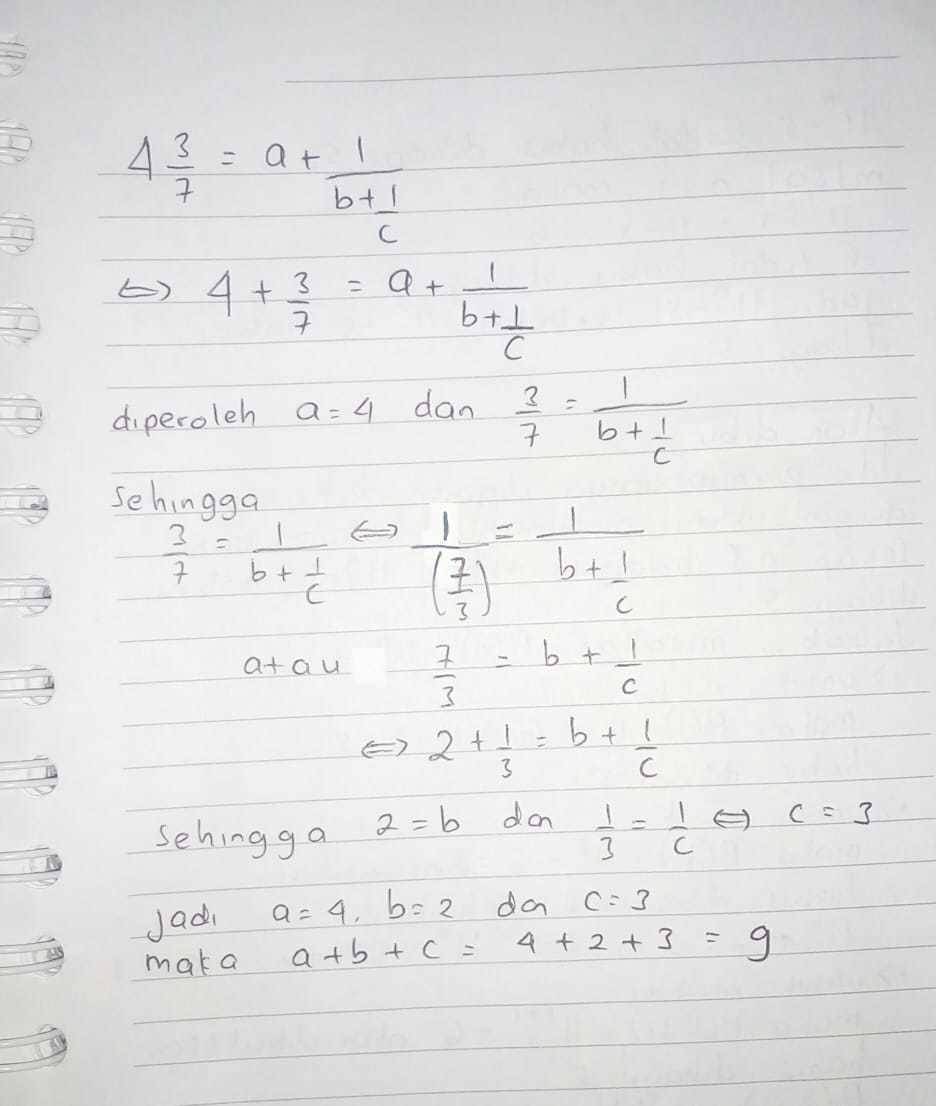 4 3/7 = a + 1/(b + 1/c)
⇔ 4 + 3/7 = a + 1/(b + 1/c)
diperoleh a = 4 dan 3/7 = 1/(b + 1/c)
Sehingga
3/7 = 1/(b + 1/c) ⇔ 1/(7/3) = 1/(b + 1/c)
atau 7/3 = b + 1/c
⇔ 2 + 1/3 = b + 1/c
Sehingga 2 = b dan 1/3 = 1/c ⇔ c = 3
Jadi a = 4, b = 2 dan c = 3
maka a + b + c = 4 + 2 + 3 = 9